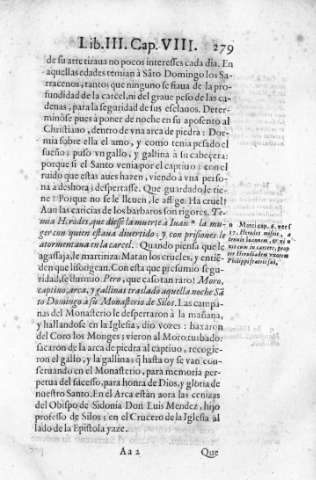 Lib. III. Cap. VIII. 279
de su arte tiraua no pocos interesses cada dia. En
aquellas edades temian à Sãto Domingo los Sa-
rracenos, tanto; que ninguno se fiaua de la pro-
fundidad de la carcel, ni del graue peso de las ca-
denas, para la seguridad de sus esclauos. Deter-
minóse pues à poner de noche en su aposento al
Christiano, dentro de vna arca de piedra: Dor-
mia sobre ella el amo, y como tenia pesado el
sueño; puso vn gallo, y gallina à su cabeçera:
porque si el Santo venia por el captiuo; con el
ruido que estas aues hazen, viendo à vna perso-
na à deshora; despertasse. Que guardado le tie-
ne! Porque no se le lleuen, le aflige. Ha cruel!
Aun las caricias de los barbaros son rigores. Te-
mia Herodes, que diesse la muerte à Iuan n la mu-
ger con quien estaua diuertido: y con prisiones le
atormentaua en la carcel. Quando piensa que le
agassaja, le martiriza. Matan los crueles, y entiẽ-
den que lisongean. Con esta que presumio segu-
ridad, se durmio. Pero, que caso tan raro! Moro,
captiuo, arca, y gallinas traslado aquella noche Sã
to Domingo à su Monasterio de Silos. Las campa-
nas del Monasterio le despertaron à la mañana,
y hallandose en la Iglesia, dio vozes: baxaron
del Coro los Monges: vieron al Moro turbado:
sacaron de la arca de piedra al captiuo, recogie-
ron el gallo, y la gallina; q̃ hasta oy se van con-
seruando en el Monasterio, para memoria per-
petua del sucesso, para honra de Dios, y gloria de
nuestro Santo. En el Arca están aora las cenizas
del Obispo de Sidonia Don Luis Mendez, hijo
professo de Silos: en el Crucero de la Iglesia al
lado de la Epistola yaze.
n Marci cap. 6. vers.
17. Herodes misit, a
tenuit Ioannem, & vi n
xit eum in carcere, prop
ter Herodiadem vxorem
Philippi fratris sui,
Aa 2 Que